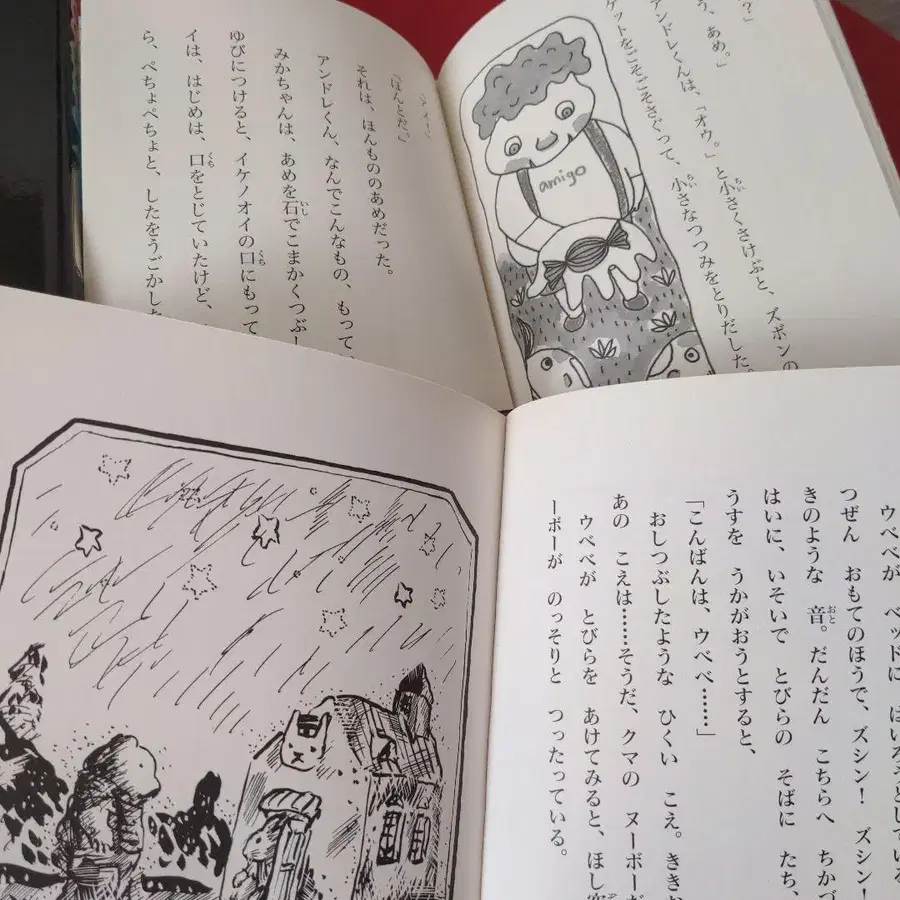 ？」
う、あめ。」
アンドレくんは、「オウ。」と小さくさけぶと、ズボンの
ケットをごそごそさぐって、小さなつつみをとりだした。
ちい
ちい
amigo
「ほんとだ。」
それは、ほんもののあめだった。
アンドレくん、なんでこんなもの、もって
みかちゃんは、あめを石でこまかくつぶ
いし
ゆびにつけると、イケノオイの口にもって
くち
イは、はじめは、口をとじていたけど、
くち
ら、ぺちょぺちょと、したをうごかした
ウベベが ベッドに はいろうとしている
つぜん おもてのほうで、ズシン！ ズシン！
きのような 音。だんだん こちらへ ちかづ
おと
はいに、いそいで とびらの そばに たち、
うすを うかがおうとすると、
「こんばんは、ウベベ……」
おしつぶしたような ひくい こえ。ききお
あの こえは……そうだ、クマの ヌーボーだ
ウベベが とびらを あけてみると、ほし空
ーボーが のっそりと つったっている。